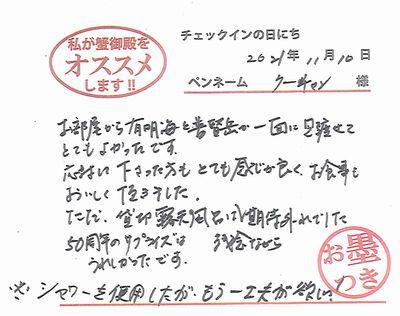 私が蟹御殿を
オススメ
します!!
チェックインの日にち
2021年 11月 10日
ペンネーム クーチャン 様
お部屋から有明海と普賢岳が一面に見渡せて
とてもよかったです。
応対して下さった方も とても感じが良く、お食事も
おいしく頂きました。
ただ、貸切露天風呂は期待外れでした
50周年のサプライズは 残念ながら
うれしかったです。
※ シャワーを使用したが、もう一工夫が欲しい!
お墨
つき